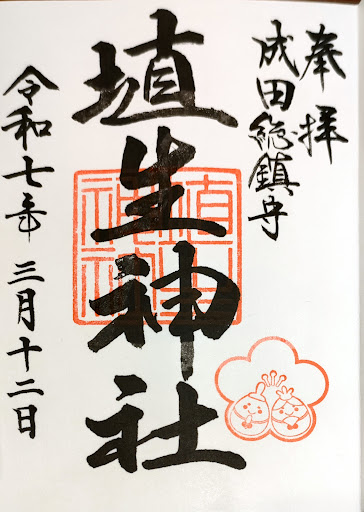 奉拝
成田総鎮守
埴生神社
令和七年三月十二日